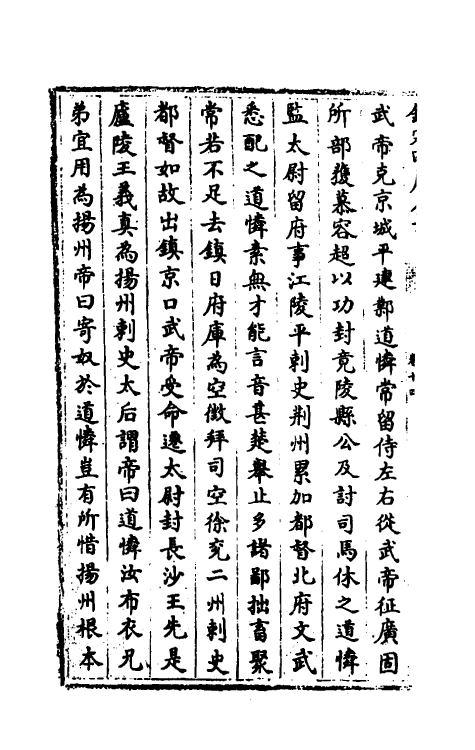 武帝克京城平建鄴道憐常留侍左右從武帝征廣固
所部獲慕容超以功封竟陵縣公及討司馬休之道憐
監太尉留府事江陵平刺史荆州累加都督北府文武
悉配之道憐素無才能言音甚楚舉止多諸鄙拙畜聚
常若不足去鎮日府庫為空徵拜司空徐兖二州刺史
都督如故出鎮京口武帝受命遷太尉封長沙王先是
廬陵王義真為揚州刺史太后謂帝曰道憐汝布衣兄
弟宜用為揚州帝曰寄奴於道憐豈有所惜揚州根本